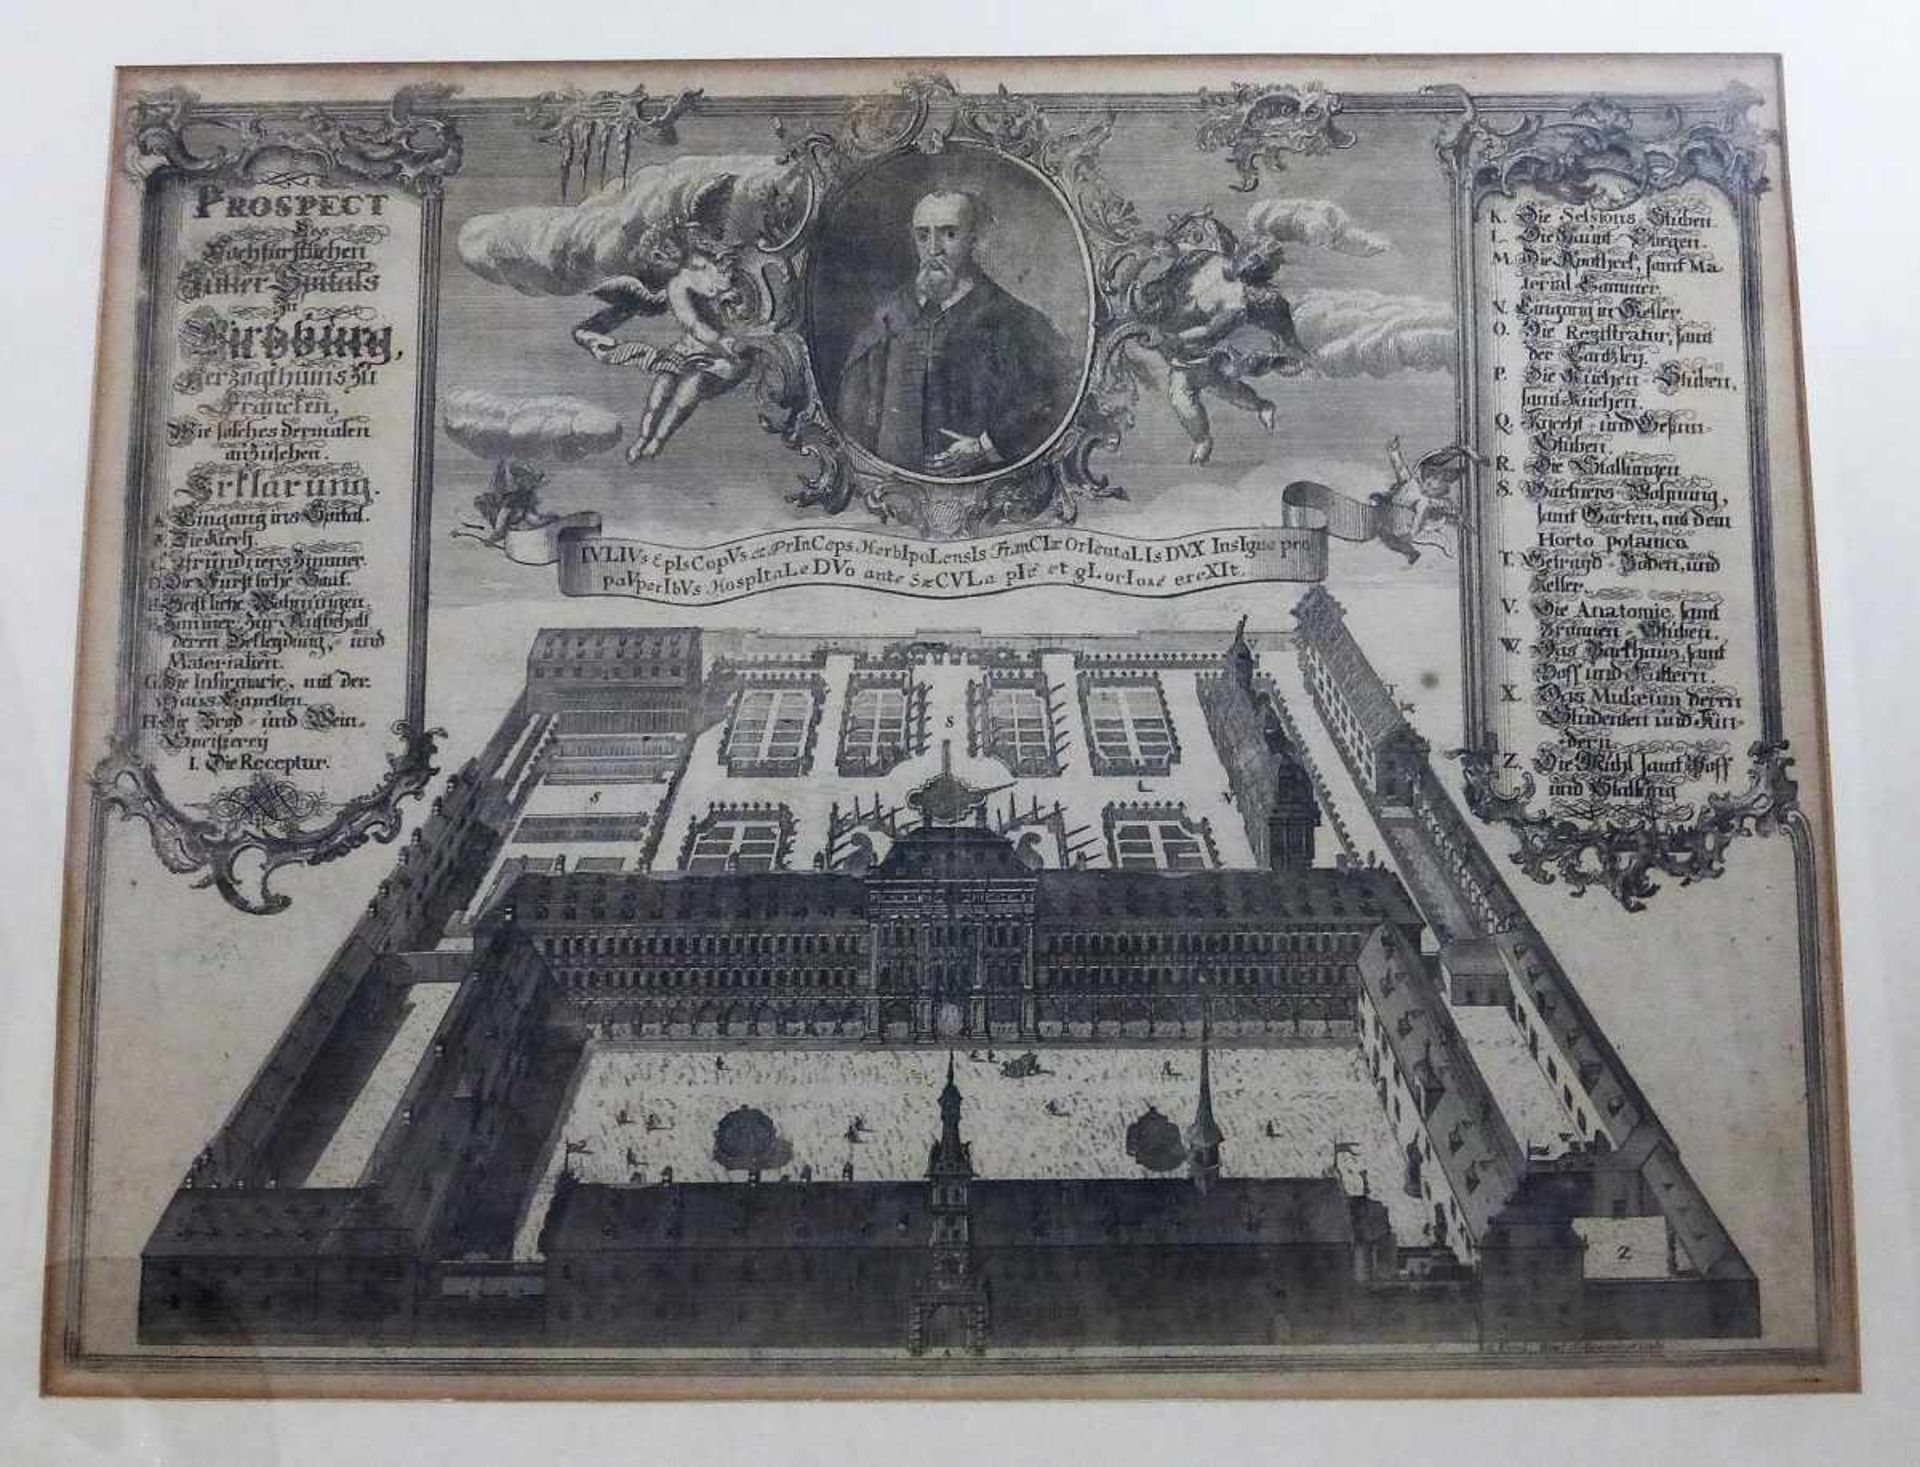 PROSPECT
Des
Hochfürstlichen
Julier-Spitals
zu
Wirtzburg,
Herzogthums zu
Francken,
Wie solches dermalen
anzusehen.
Erklärung.
A. Eingang ins Spital.
B. Die Kirch.
C. Pfründners Zimmer.
D. Die Fürstliche Saul.
E. Geistliche Wohnungen.
F. Zimmer, zur Aufbehalt
deren Bekleydung, und
Materialien.
G. Die Infirmarie, mit der
Haus Capellen.
H. Die Brod- und Wein-
Speisserey
I. Die Receptur.
IVLIVs EpIsCopVs et PrInCeps HerbIpoLensIs FranCIæ OrIentaLIs DVX InsIgne pro
paVperIbVs HospItaLe DVo ante SæCVLa pIè et gLorIosè ereXIt.
K. Die Sessions Stuben.
L. Die Haupt Stiegen.
M. Die Apotheck, samt Ma
terial Cammer.
N. Eingang in Keller.
O. Die Registratur, samt
der Cantzley.
P. Die Kuchen-Stuben,
samt Kuchen.
Q. Knecht- und Gesind-
Stuben.
R. Die Stallungen
S. Gartners Wohnung,
samt Garten, mit dem
Horto potanica
T. Getrayd-Böden, und
Keller.
V. Die Anatomie, samt
Bronnen-Stuben.
W. Das Backhaus, samt
Hoff und Kaltern.
X. Das Musæum deren
Studenten und Kin-
dern
Z. Die Mühl samt Hoff
und Stallung
S
S
L
N
T
A
Z
A